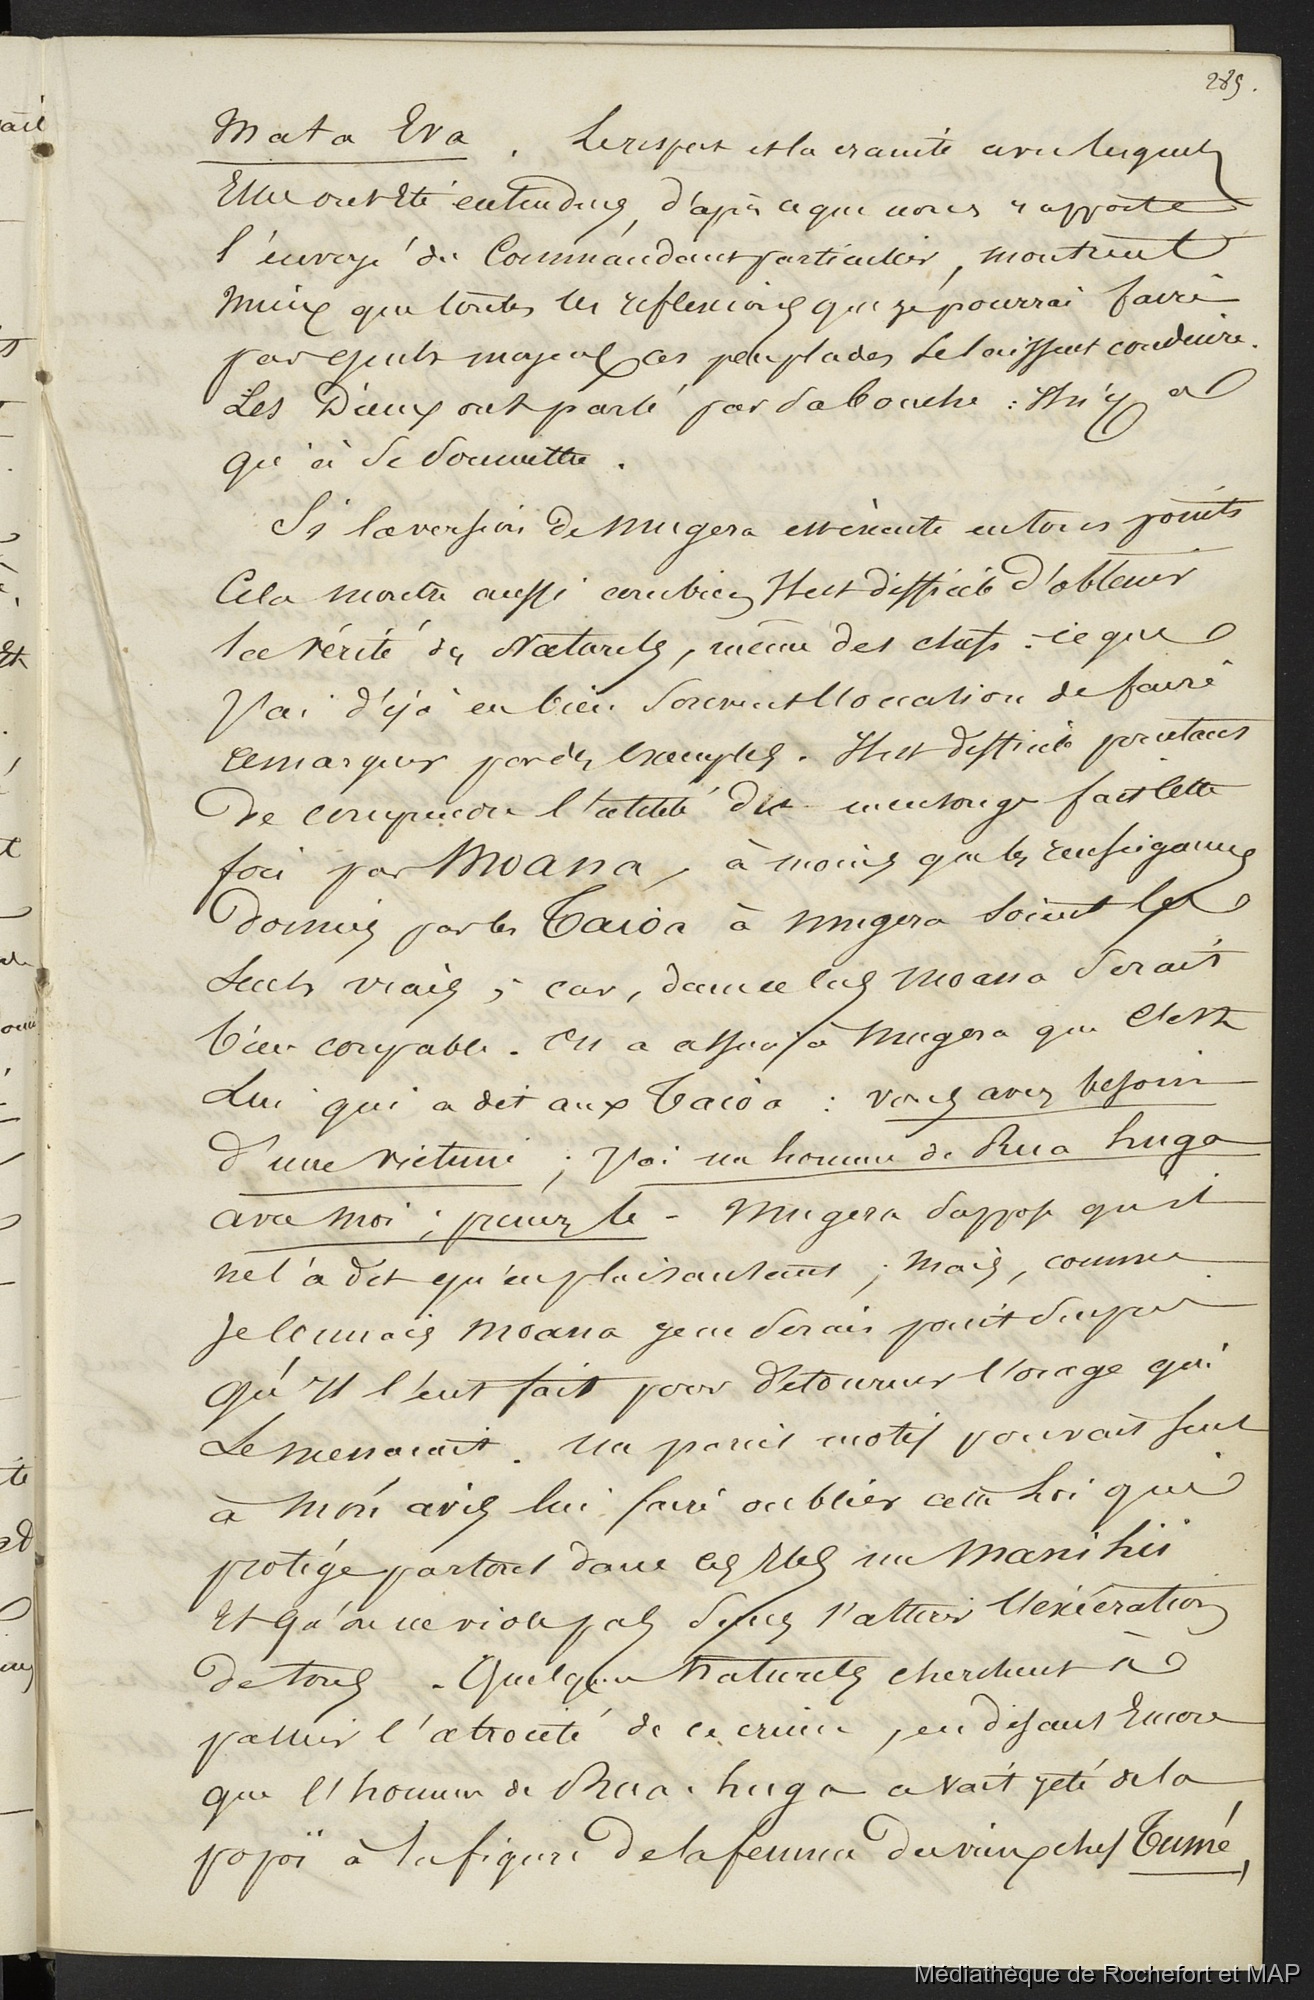 289.
Mata Eva. Le respect et la crainte avec lesquels
Elles ont Eté entendues, d'après ce que nous rapporte
l'envoyé du Commandant particulier, montrent
Mieux que toutes les reflexions que je pourrai faire
par quels moyens ces peuplades se laissent conduire.
Les Dieux ont parlé par sa bouche : Il n'y a
qu'à se soumettre.
Si la version de Mugera est exacte en tous points
Cela montre aussi combien Il est difficile d'obtenir
la Vérité des Naturels, même des chefs : ce que
J'ai déjà eu bien souvent l'occasion de faire
remarquer par des Exemples. Il est difficile pourtant
De comprendre l'utilité du mensonge fait cette
fois par Moana, à moins que les renseignemens
Donnés par les Taioa à Mugera soient les
seuls vrais ; car, dans ce cas Moana serait
bien coupable. On a assuré à Mugera que C'est
Lui qui a dit aux Taioa : vous avez besoin
d'une victime ; J'ai un homme de Rua huga
avec moi ; prenez le - Mugera suppose qu'il
ne l'a dit qu'en plaisantant ; Mais, comme
Je connais Moana je ne serais point surpris
qu'Il l'eut fait pour détourner l'orage qui
Le menacait. Un pareil motif pouvait seul
à mon avis lui faire oublier cette Loi qui
protége partout dans ces Iles un Manihii
Et qu'on ne viole pas sans s'attirer l'exécration
de tous. - Quelques Naturels cherchent à
pallier l'atrocité de ce crime, en disant Encore
que l'homme de Rua-huga avait jeté de la
popoï à la figure de la femme du vieux chef Tumé,
Médiathèque de Rochefort et MAP